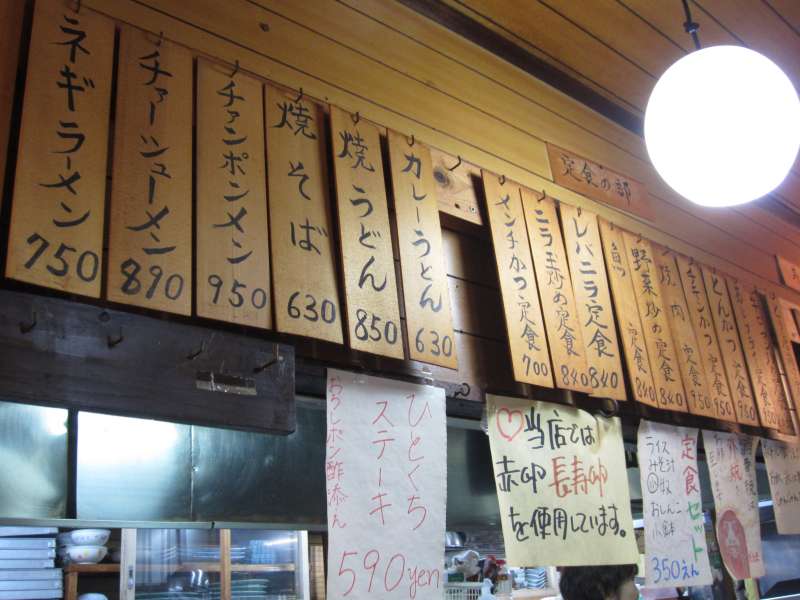 ネギラーメン
750
チャーシューメン
890
チャンポンメン
950
焼そば
630
焼うどん
850
カレーうどん
630
定食の部
メンチかつ定食
700
ニラ玉炒め定食
840
レバニラ定食
840
魚
定食
840
野菜炒め定食
840
焼肉
定食
950
チキンかつ定食
950
とんかつ定食
950
ひとくち
ステーキ
おろしポン酢添え
590yen
♡当店では
赤卵 長寿卵
を使用しています。
定食セット
ライス
みそ汁
おしんこ
小鉢
350えん